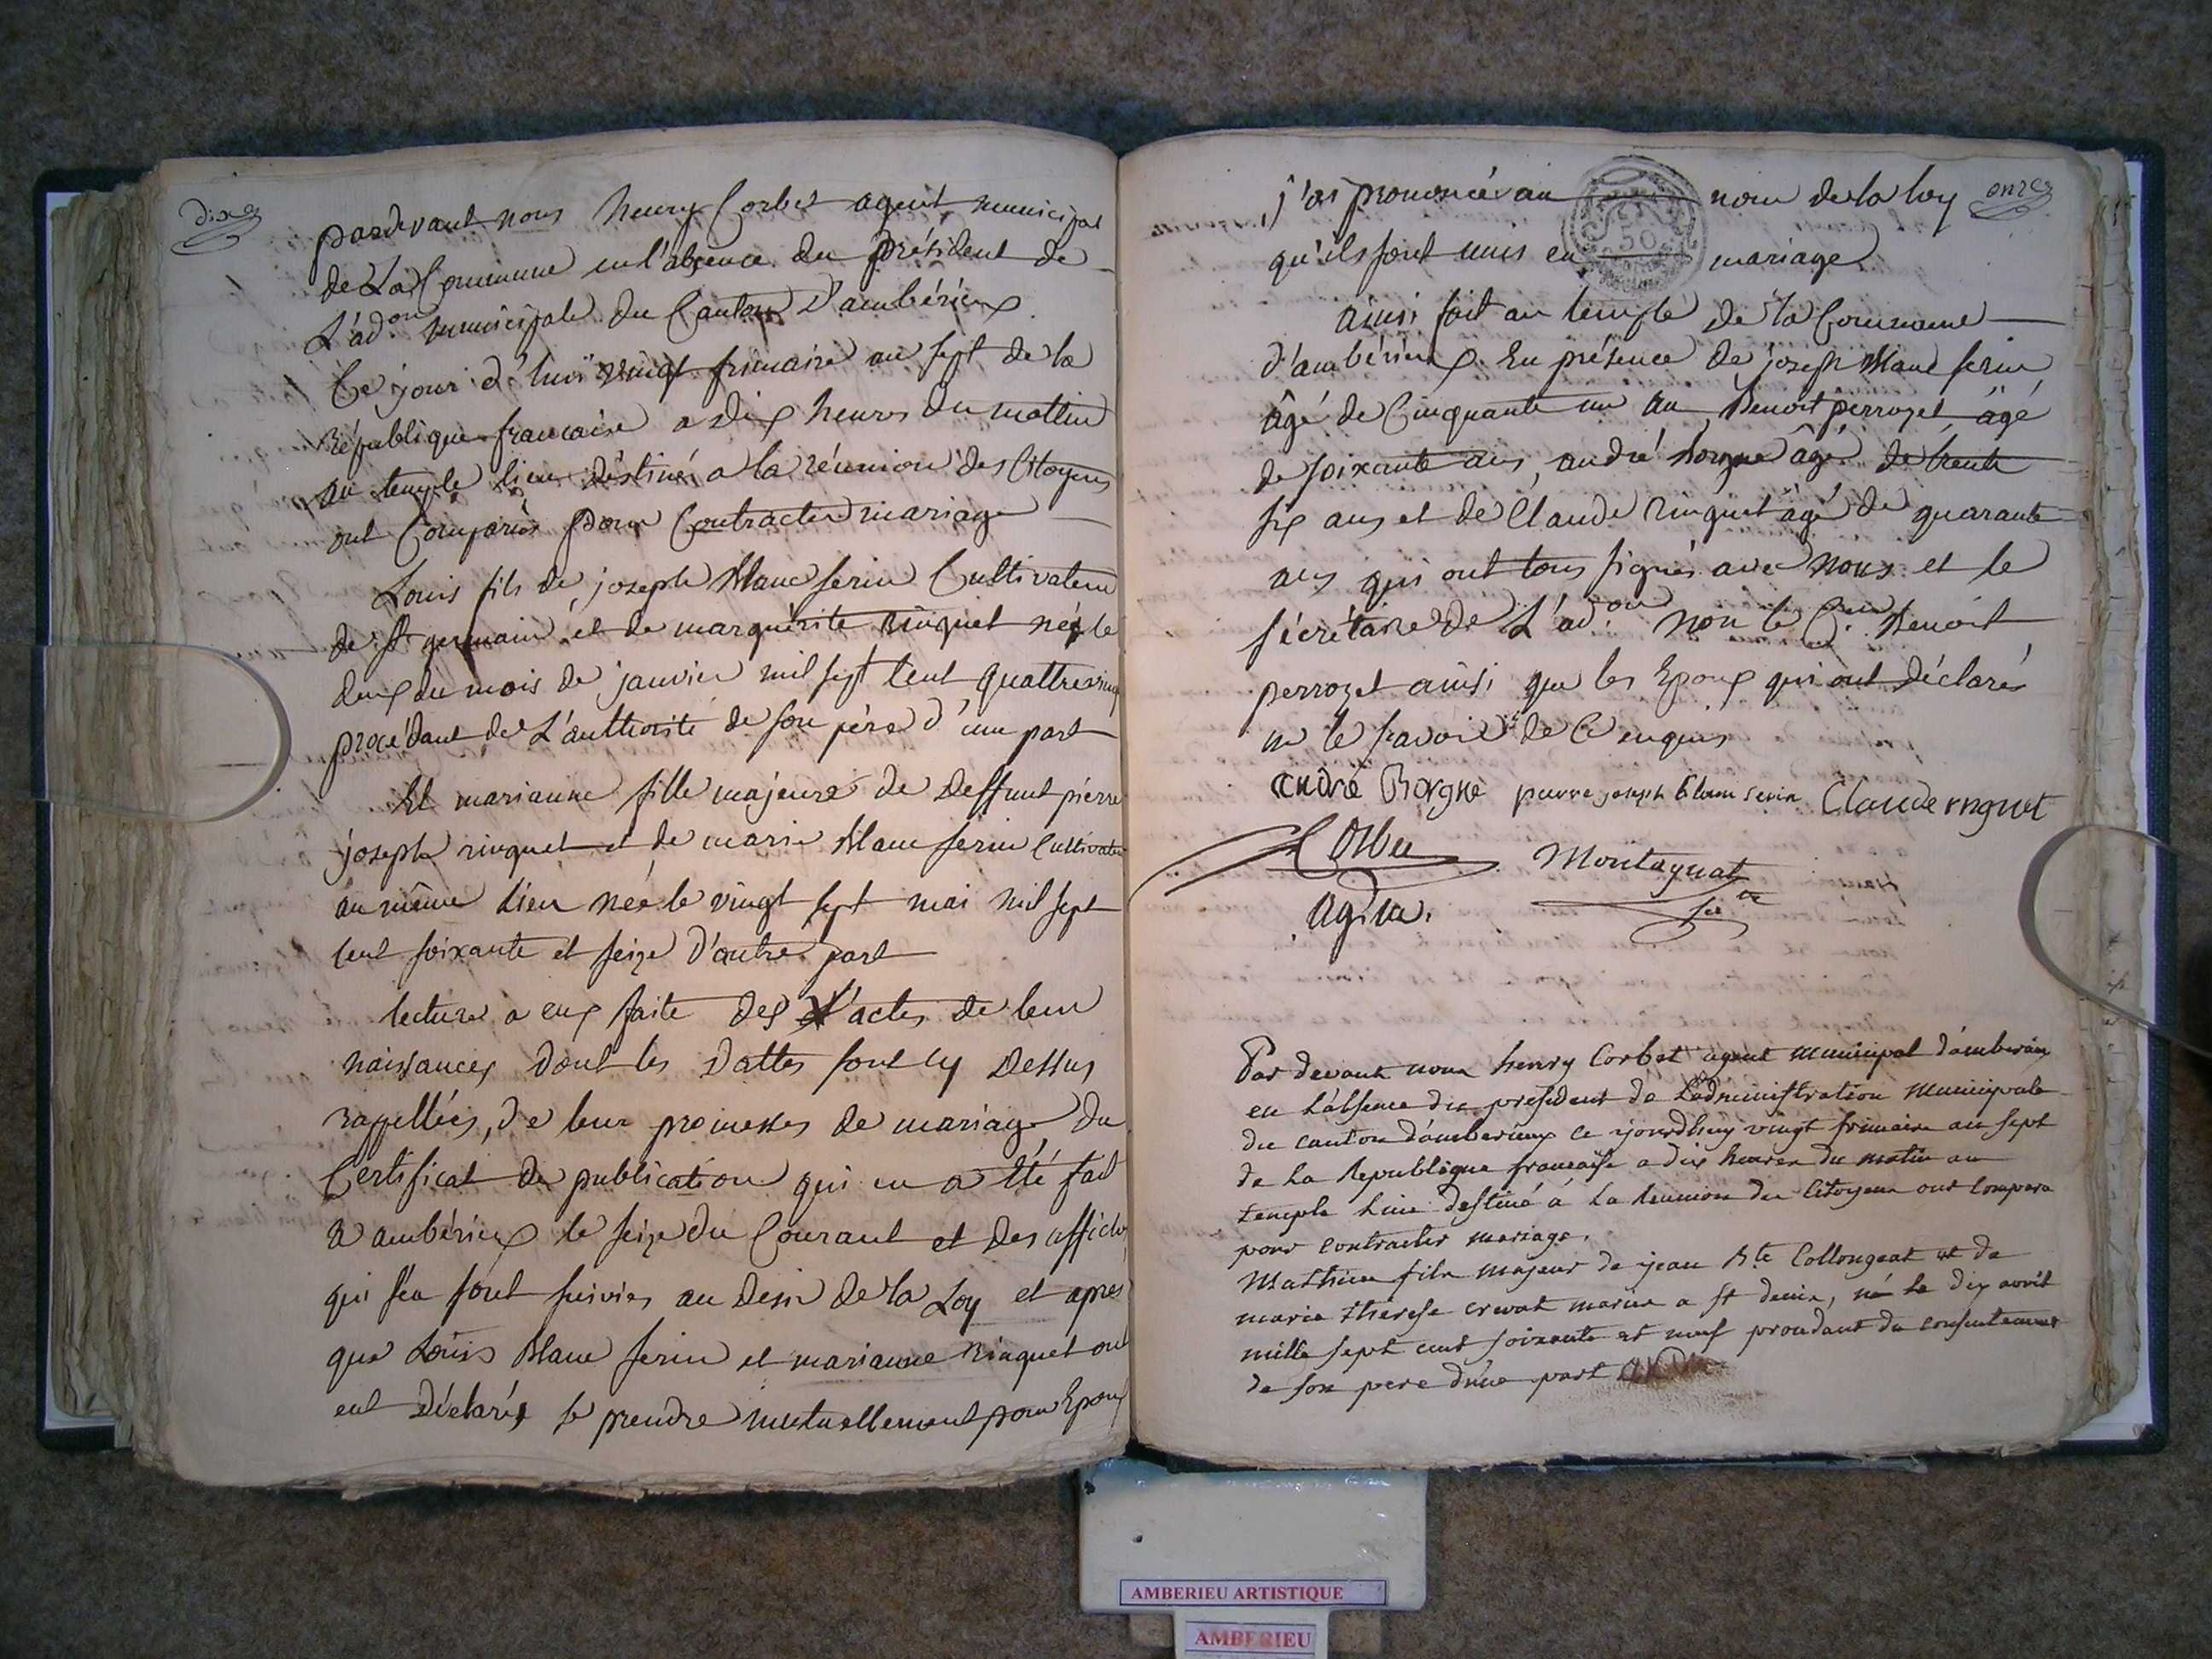 dixe
pardevant nous henry Corbet agent municipal
de La Commune en l'absence du président de
L'adon municipale du Canton d'ambérieux
Ce jour d'huï vingt frimaire an sept de la
République francaise a dix heures du mattin
au temple lieu déstiné a la réunion des Citoyens
ont Comparùs pour Contracter mariage
Louis fils de joseph Blanc ferin Cultivateur
de St germain et de marguérite ringuet né le
deux du mois de janvier mil sept cent quattrevingt
procédant de L'authorité de son père d'une part
Et marianne fille majeure de deffunt piérre
joseph ringuet et de marie Blanc ferin Cultivateur
au même lieu née le vingt sept mai mil sept
cent soixante et seize d'autre part
lecture a eux faite des actes de leur
naissances dont les dattes sont cy dessus
rappellées, de leur promesses de mariage du
Certificat de publication qui en a été fait
a ambérieux le seize du Courant et des affiches
qui s'en sont suivies au desir de la Loy et après
que Louis Blanc ferin et marianne Ringuet ont
eut déclarés se prendre mutuellement pour Epoux
onze
j'ai prononcé au nom de la loy
50
qu'ils sont unis en mariage
ainsi fait au temple de la Commune
d'ambérieux En présence de joseph Blanc ferin
âgé de Cinquante un an Benoit perrozet âgé
de soixante ans, andré Borgne âgé de trente
six ans et de Claude Ringuet âgé de quarante
ans qui ont tous signés avec nous et le
sécrétaire de L'adon non le Cen Benoit
perrozet ainsi que les Epoux qui ont déclarés
ne le savoir de Ce enquis
andré Borgne pierre joseph blanc serin Claude ringuet
Corbet Montagnat
ag. m. sre
Par devant nous henry Corbet agent municipal d'amberieux
en L'absence du président de L'administration municipale
du canton d'amberieux ce jourdhuy vingt frimaire an sept
de La Republique française a dix heures du matin au
temple Lieu destiné à La Reunion des Citoyens ont comparu
pour contracter mariage.
Mathieu fils majeur de jean Bte Collongeat et de
marie therese crevat mariés a St denis, né le dix avril
mille sept cent soixante et neuf procedant du consentement
de son pere d'une part
AMBERIEU ARTISTIQUE
AMBERIEU